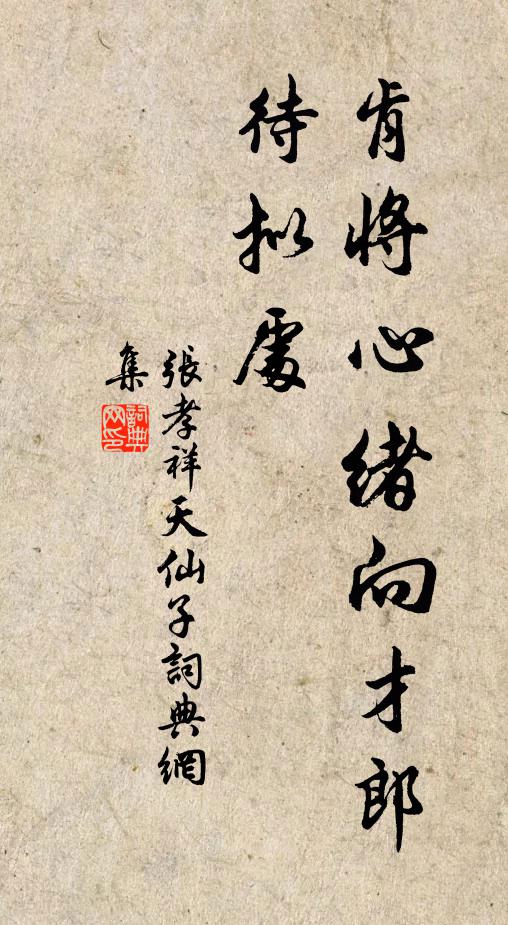 肯將心緒向才郎
待拟處
張孝祥天仙子詞典網
集
詞典
网印